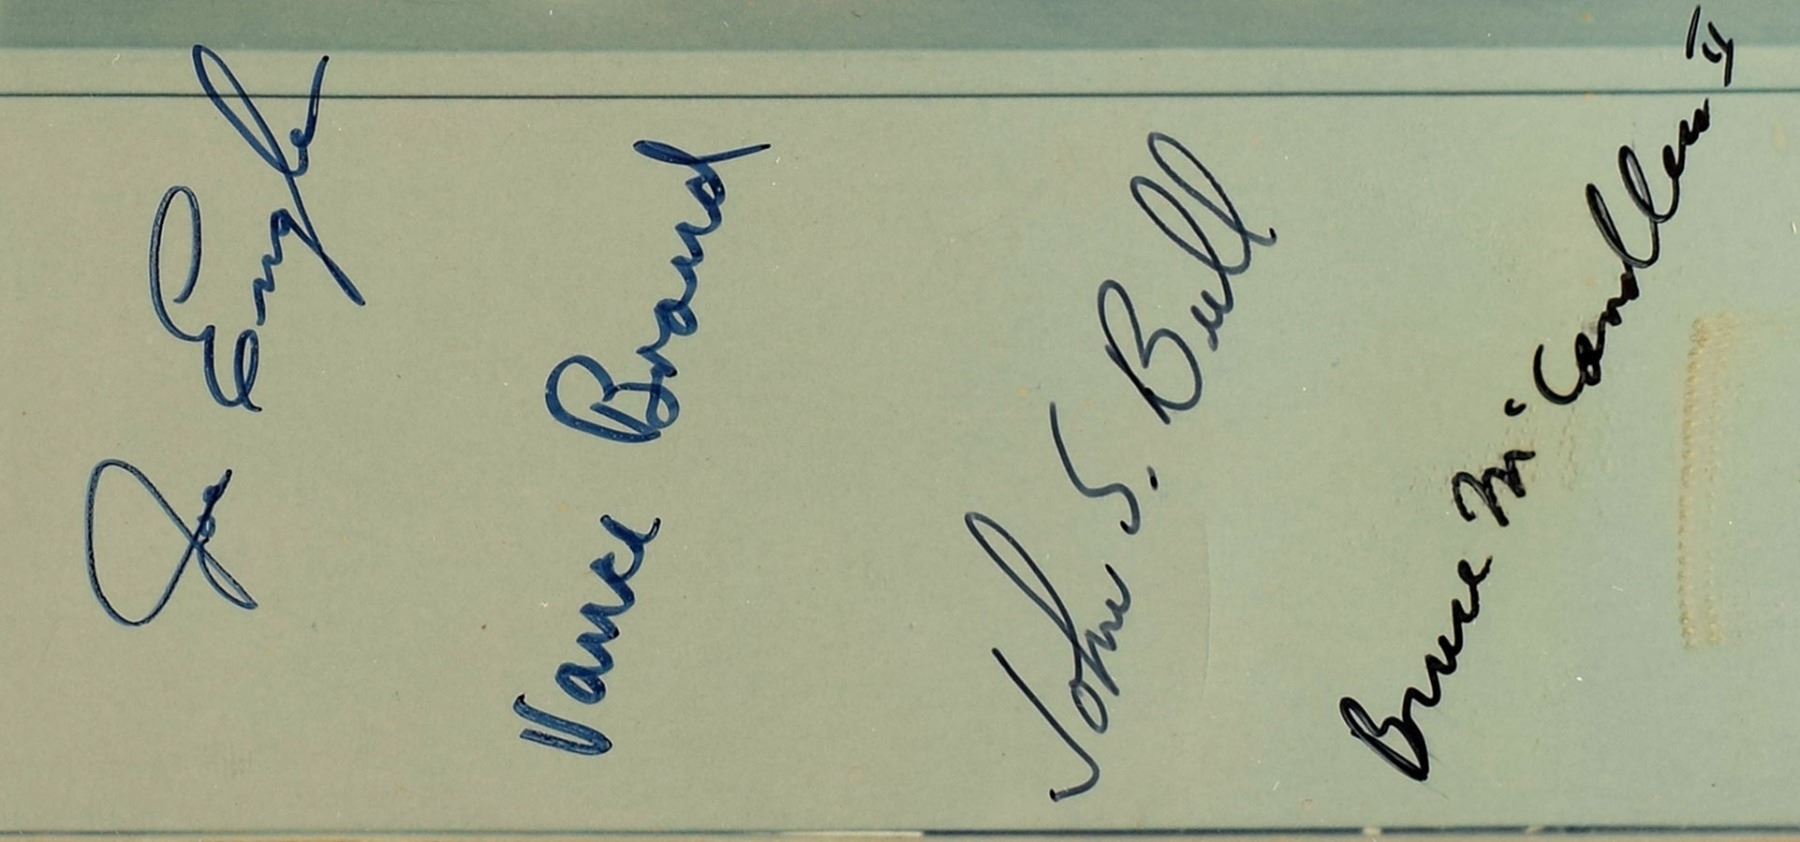 Joe Engle
Vance Brand
John S. Bull
Bruce McCandless II